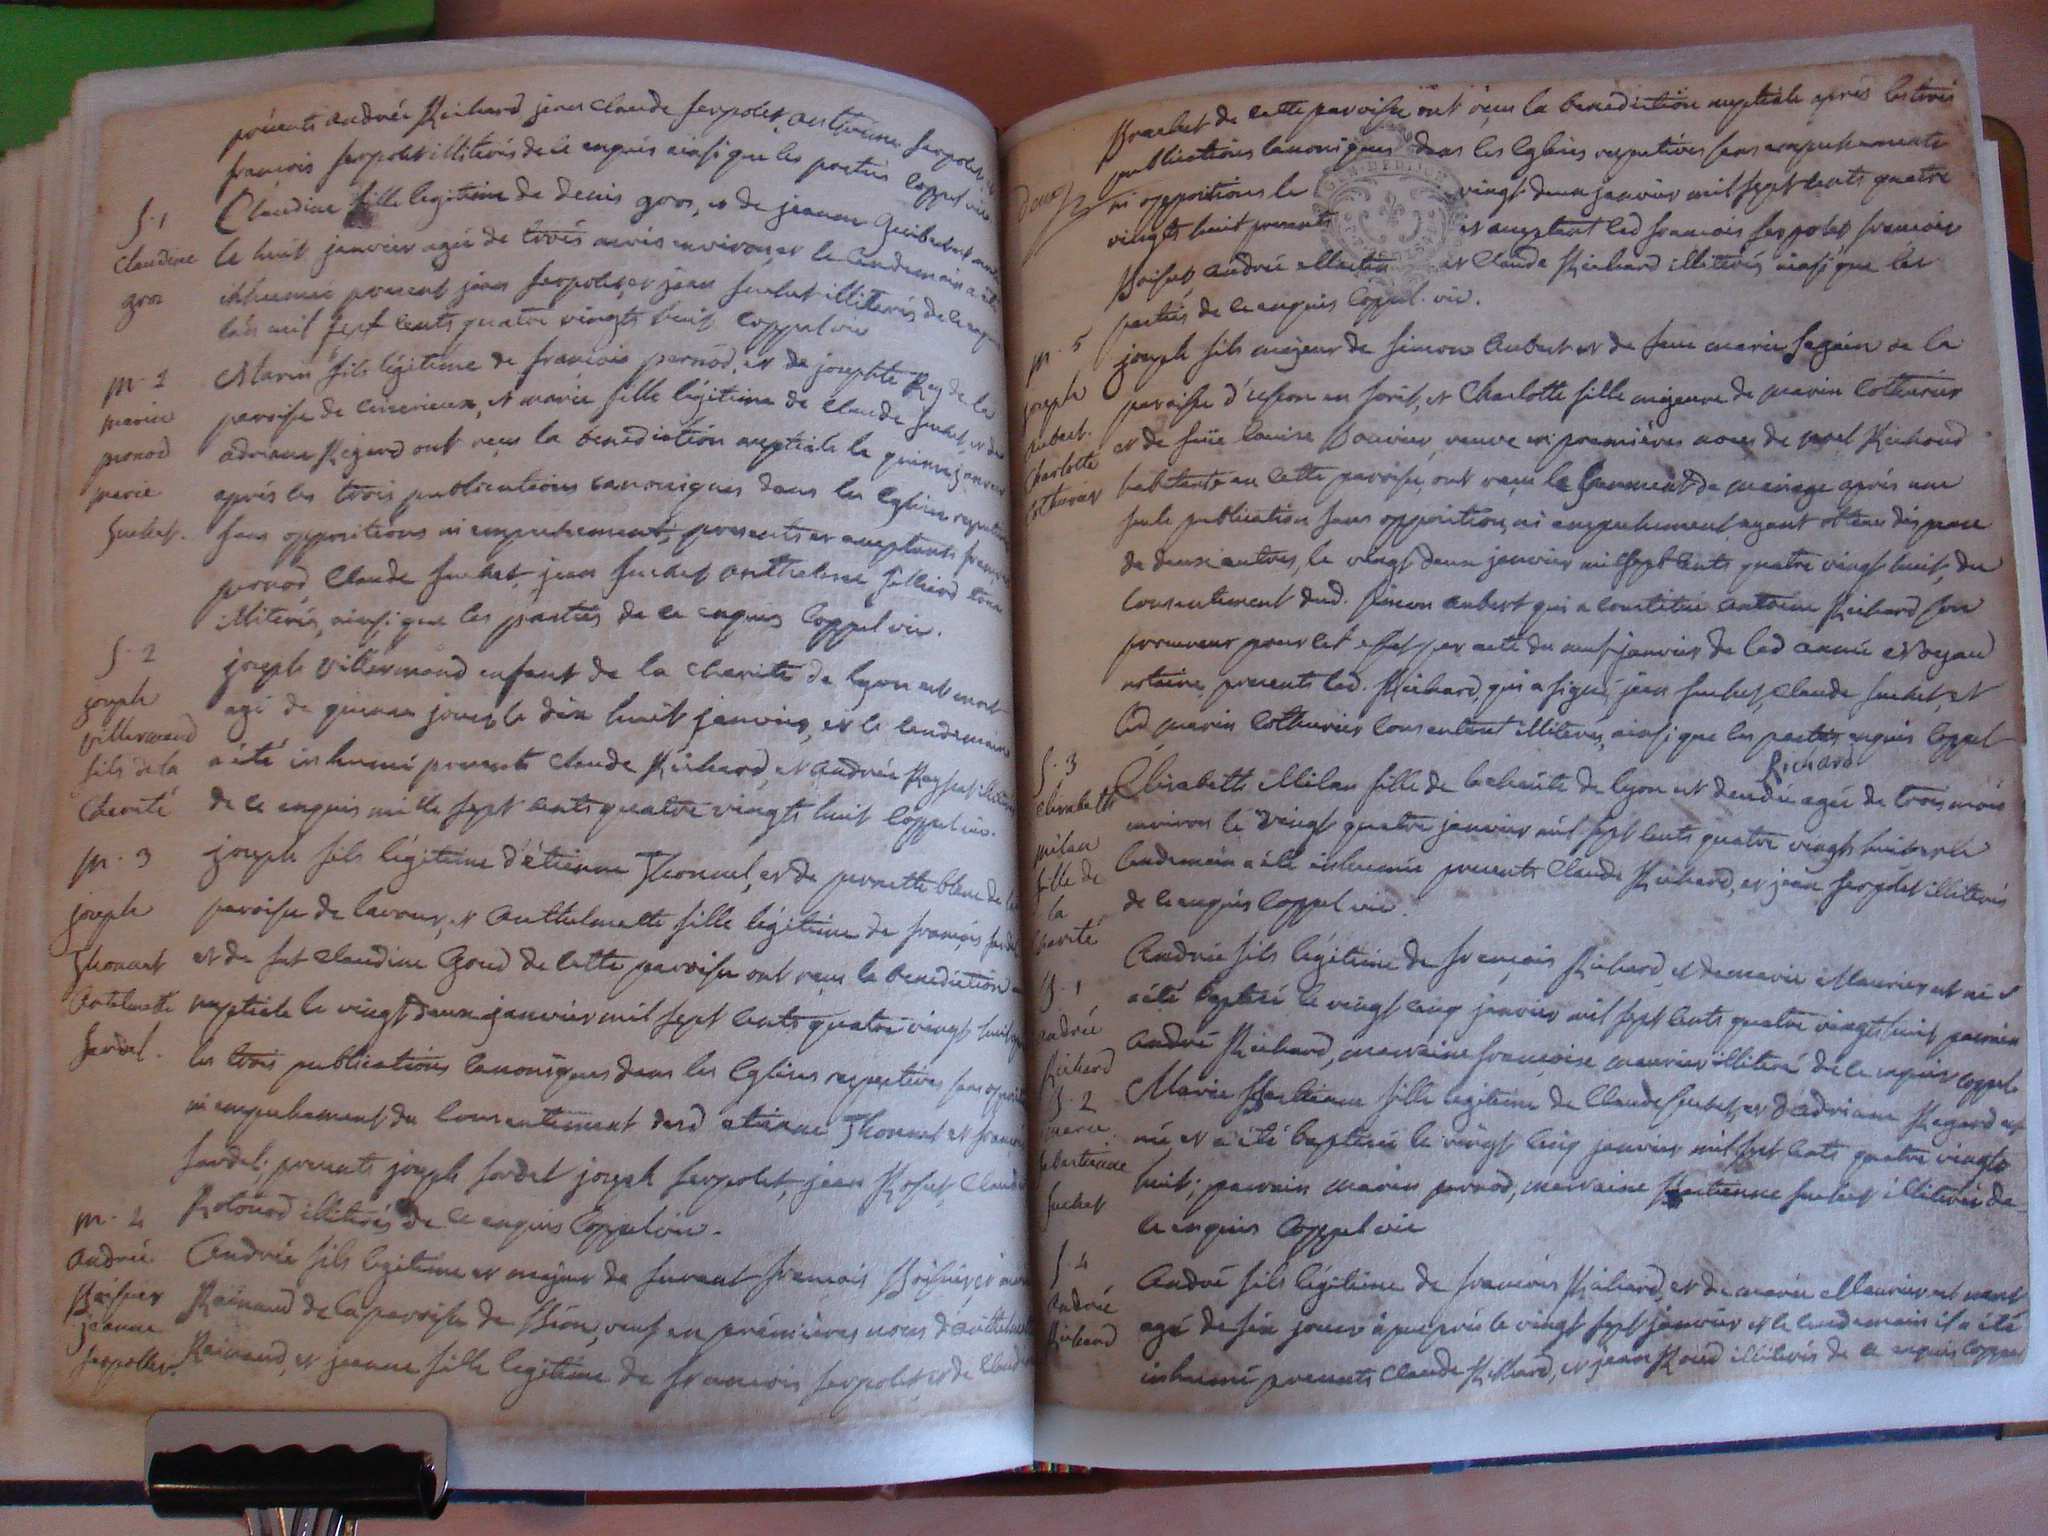 présents andrée Richard jean claude serpolet, antheme serpolet, et
francois serpolet illitérés de ce enquis ainsi que les parties Coppel vic.
S. 1
Claudine
gros
Claudine fille legitime de denis gros, et de jeanne
le huit janvier agée de trois mois environ, et le lendemain a été
inhumée present jean serpolet, et jean suchet illitérés de ce enquis
l'an mil sept cents quatre vingts huit Coppel vic
m. 2
marin
pernod
marie
suchet.
Marin fils légitime de françois pernod, et de josephte Rey de la
paroisse de ceiserieux, et marie fille légitime de claude suchet, et de
adriane Regard ont reçu la benediction nuptiale le quinze janvier
aprés les trois publications canoniques dans les Eglises respectives
sans oppositions ni empechement, presents et acceptants francois
pernod, Claude suchet, jean suchet anthelme tous
illiterés, ainsi que les parties de ce enquis Coppel vic.
S. 2
joseph
villermond
fils de la
charité
joseph villermond enfant de la charité de lyon est mort
agé de quinze jours le dix huit janvier, et le lendemain
a été inhumé presents claude Richard, et andrée
de ce enquis mille sept cents quatre vingts huit Coppel vic.
m. 3
joseph
Thonnet
Antelmette
sardet.
joseph fils légitime d'étienne Thonnet, et de pernette blanc de la
paroisse de lavour, et Anthelmette fille légitime de francois sardet
et de fut claudine Goud de cette paroisse ont reçu la benediction
nuptiale le vingt deux janvier mil sept cents quatre vingt huit
les trois publications canoniques dans les Eglises respectives sans opposition
ni empechement du consentement desd etienne Thonnet et francois
sardet; presents joseph sardet joseph serpolet, jean Rosset, Claude
illitérés de ce enquis Coppel vic.
m. 4
andrée
Boisset
jeanne
serpollet.
Andrée fils legitime et majeur de survant francois Boisset, et
Rainaud de la paroisse de Béon, veuf en premières noces d'anthelmette
Rainaud, et jeanne fille legitime de francois serpolet et de Claudine
Brachet de cette paroisse ont reçu la benediction nuptiale aprés les trois
publications canoniques dans les Eglises respectives sans empechements
ni oppositions le vingt deux janvier mil sept cents quatre
vingts huit presents et acceptant led francois serpolet francois
Boisset, andrée Martin et claude Richard illitérés ainsi que les
parties de ce enquis Coppel vic.
m. 5
joseph
aubert.
Charlotte
Cotturier
joseph fils majeur de simon Aubert et de feue marie de la
paroisse en foret, et Charlotte fille majeure de marin Cotturier
et de feüe louise Bouvier, veuve en premières noces de Richard
habitants en cette paroisse, ont reçu le sacrement de mariage aprés une
seule publication sans opposition, ni empechement, ayant obtenu dispense
de deux autres, le vingt deux janvier mil sept cents quatre vingt huit, du
consentement dud. simon aubert qui a constitué antoine Richard son
procureur pour cet effet par acte du neuf janvier de lad année
notaire, presents led. Richard, qui a signé, jean suchet, claude suchet, et
led marin Cotturier consentent illiterés, ainsi que les parties enquis Coppel
Richard
S. 3
elisabeth
milan
fille de
la
charité
Elisabeth Milan fille de la charité de lyon est decedée agée de trois mois
environ le vingt quatre janvier mil sept cents quatre vingts huit et le
lendemain a été inhumée presents claude Richard, et jean serpolet illitérés
de ce enquis Coppel vic.
B. 1
andrée
Richard
Andrée fils légitime de françois Richard, et de marie Maurier est né et
a été baptisé le vingt cinq janvier mil sept cents quatre vingts huit, parrain
André Richard, marraine françoise maurier illitéré de ce enquis Coppel
B. 2
marie
sebastienne
suchet
Marie fille legitime de Claude suchet, et d'adriane Regard est
née et a été baptisée le vingt cinq janvier mil sept cents quatre vingts
huit; parrain marin pernod, marraine suchet illitérés de
ce enquis Coppel vic
S. 4
andrée
Richard
André fils légitime de françois Richard, et de marie Maurier est mort
agé de six jours à peu prés le vingt sept janvier et le lendemain il a été
inhumé presents claude Richard, et jean Roud illitérés de ce enquis Coppel